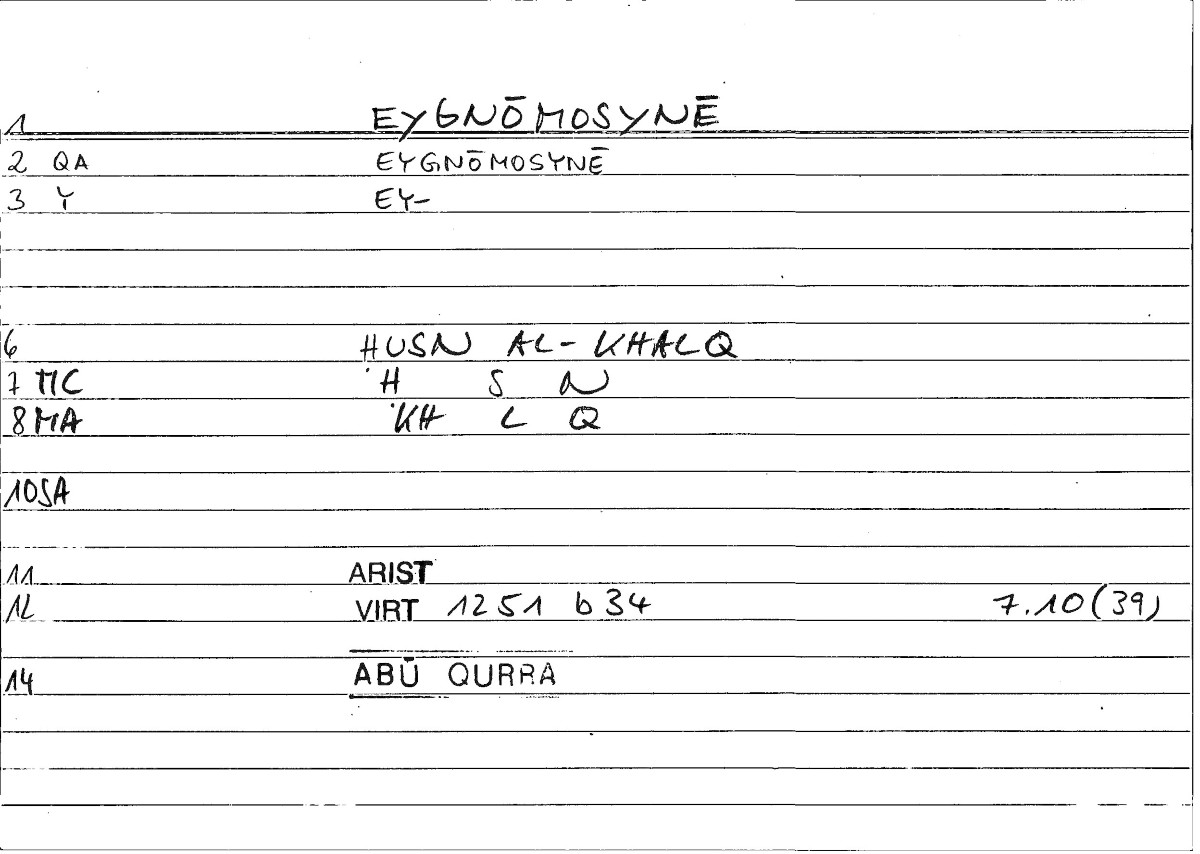 1 EYGNŌMOSYNĒ
2 QA EYGNŌMOSYNĒ
3 Y EY-
6 HUSN AL-KHALQ
7 MC H S N
8 MA KH L Q
10 SA
11 ARIST
12 VIRT 1251 b 34 7.10 (39)
14 ABŪ QURRA